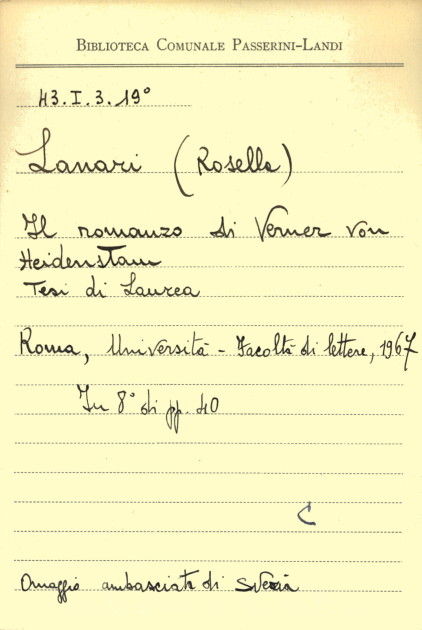 BIBLIOTECA COMUNALE PASSERINI-LANDI
43.I.3.19°
Lanari (Rosella)
Il romanzo di Verner von
Heidenstam
Tesi di Laurea
Roma, Università - Facoltà di lettere, 1967
In 8° di pp. 40
C
Omaggio ambasciata di Svezia